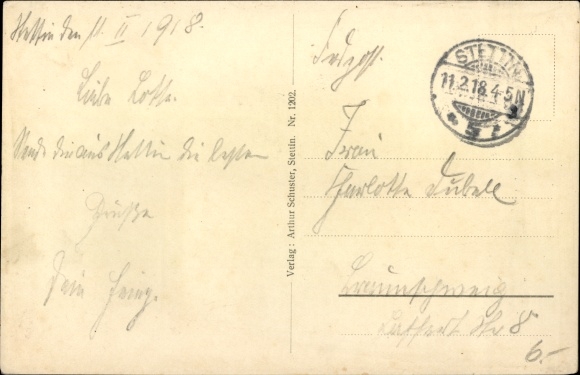 Stettin den 11. II 1918.
Liebe Lotte.
Sende dir aus Stettin die besten
Grüße
Dein
Feldpost.
STETTIN
11.2.18.4-5N
* 5 r
Frau
Charlotte Dubell
Braunschweig
Str 8
6.-
Verlag: Arthur Schuster, Stettin. Nr. 1202.